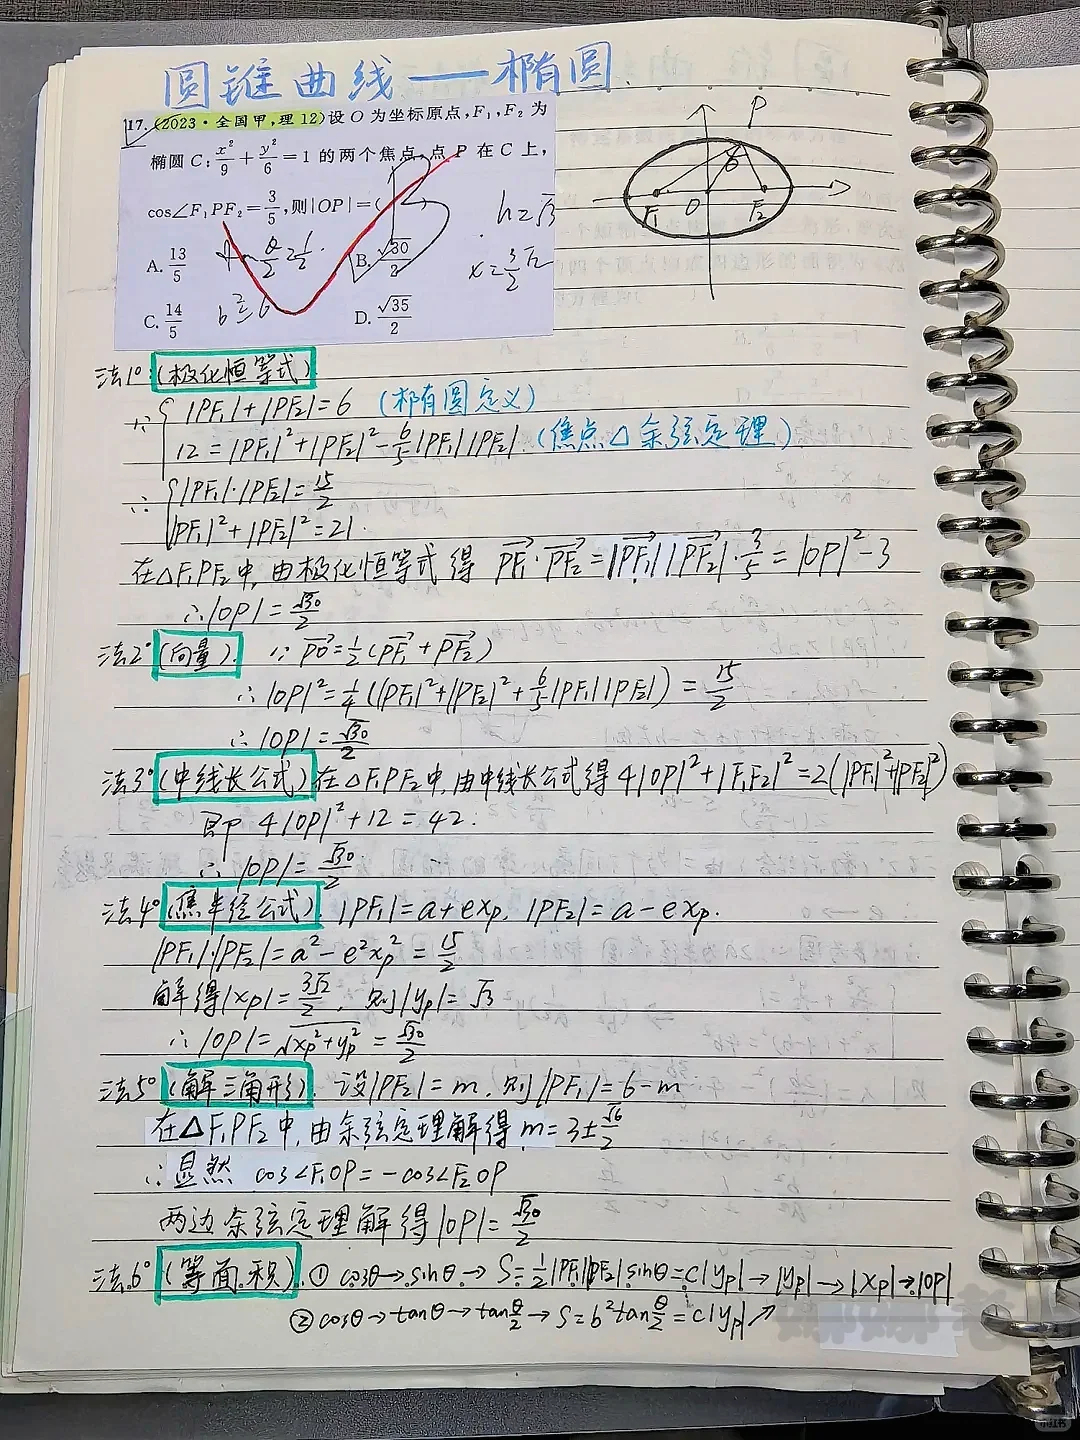 圆锥曲线——椭圆
17.(2023·全国甲,理12)设O为坐标原点,F₁,F₂为
椭圆C:x²/9+y²/6=1的两个焦点,点P在C上,
cos∠F₁PF₂=3/5,则|OP|=( )
A. 13/5
B. √30/2
C. 14/5
D. √35/2
b²=6
h=√3
x=3/2√2
P
θ
F₁ O F₂
法1°(极化恒等式)
∵{|PF₁|+|PF₂|=6 (椭圆定义)
12=|PF₁|²+|PF₂|²-6/5|PF₁||PF₂|.(焦点△余弦定理)
∴{|PF₁|·|PF₂|=15/2
|PF₁|²+|PF₂|²=21.
在△F₁PF₂中,由极化恒等式得 PF₁·PF₂=|PF₁||PF₂|·3/5=|OP|²-3
∴|OP|=√30/2
法2°(向量). ∵PO=1/2(PF₁+PF₂)
∴|OP|²=1/4(|PF₁|²+|PF₂|²+6/5|PF₁||PF₂|)=15/2
∴|OP|=√30/2
法3°(中线长公式)在△F₁PF₂中,由中线长公式得4|OP|²+|F₁F₂|²=2(|PF₁|²+|PF₂|²)
即 4|OP|²+12=42.
∴|OP|=√30/2
法4°(焦半径公式).|PF₁|=a+exₚ, |PF₂|=a-exₚ.
|PF₁|·|PF₂|=a²-e²xₚ²=15/2
解得|xₚ|=3√2/2,则|yₚ|=√3
∴|OP|=√(xₚ²+yₚ²)=√30/2
法5°(解三角形).设|PF₂|=m,则|PF₁|=6-m
在△F₁PF₂中,由余弦定理解得m=3±√6/2
∴显然 cos∠F₁OP=-cos∠F₂OP
两边余弦定理解得|OP|=√30/2
法6°(等面积).①cosθ→sinθ→S=1/2|PF₁||PF₂|sinθ=c|yₚ|→|yₚ|→|xₚ|→|OP|
②cosθ→tanθ→tanθ/2→S=b²tanθ/2=c|yₚ|↗